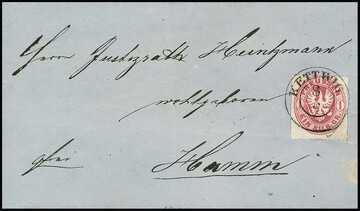 Herrn Justizrath Heintzmann
wohlgeboren
frei
Hamm
KETTWIG
8
1
EIN SILB. GR.